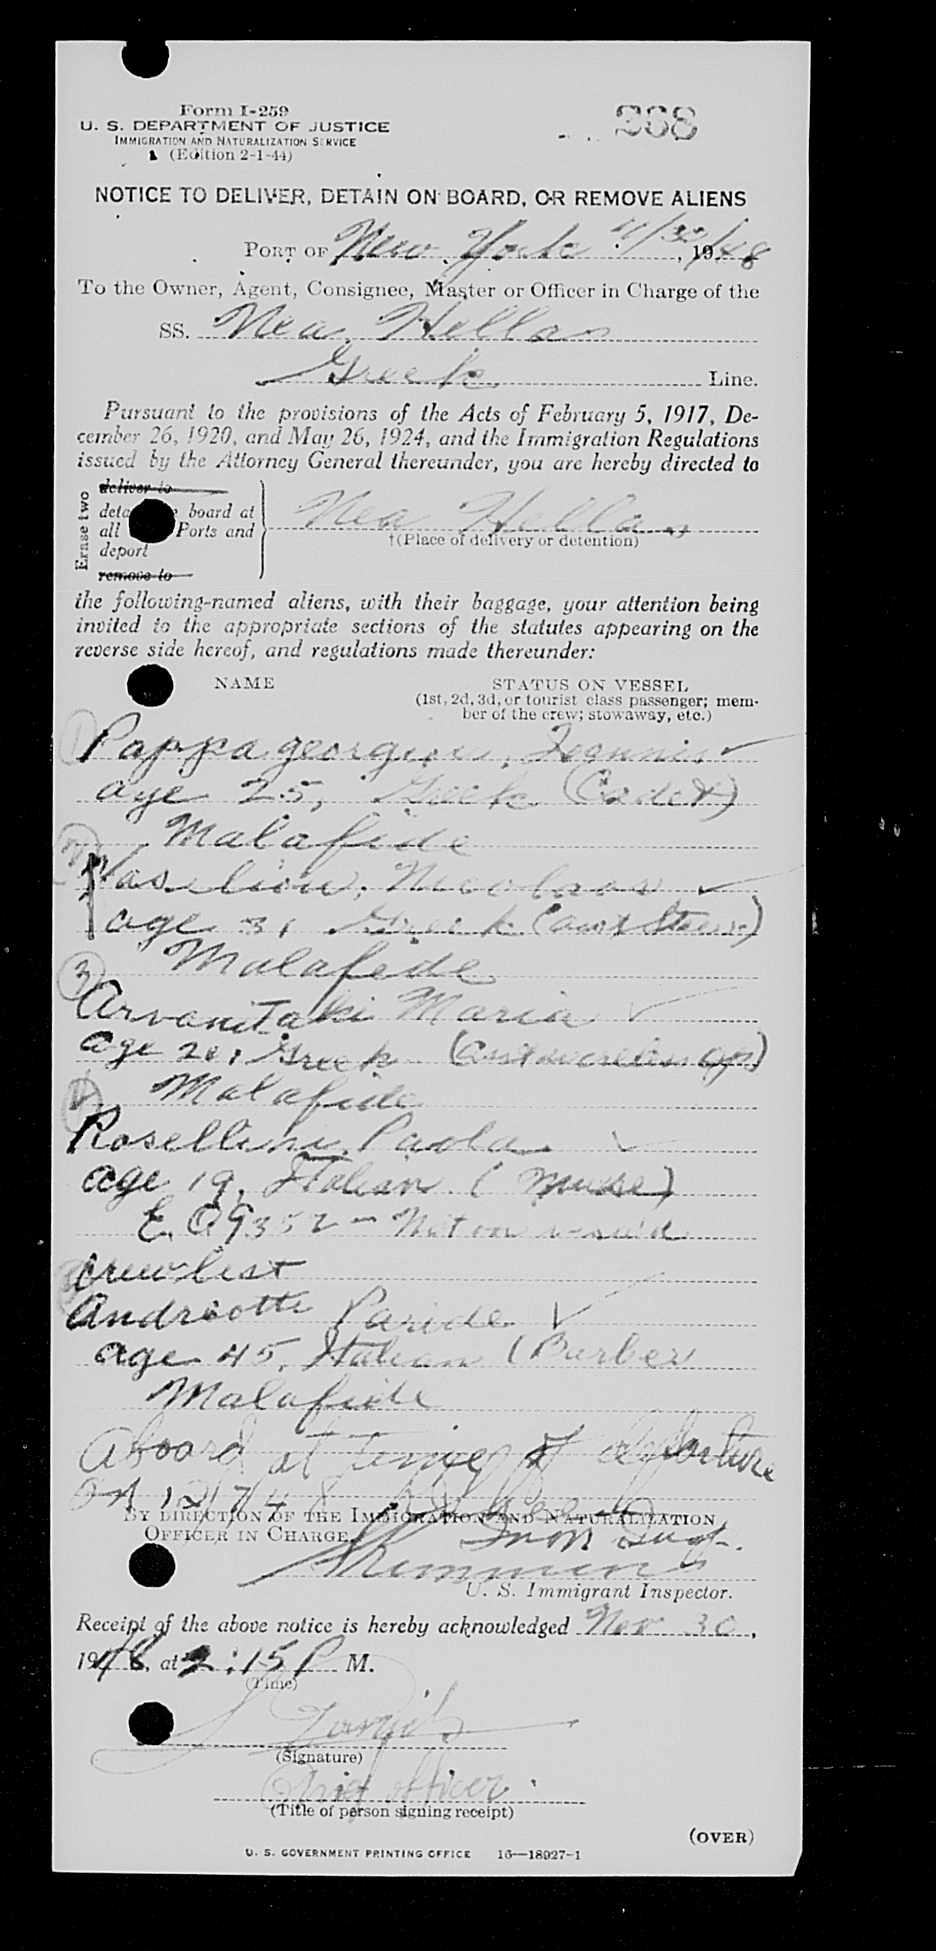 Form I-259
U. S. DEPARTMENT OF JUSTICE
IMMIGRATION AND NATURALIZATION SERVICE
(Edition 2-1-44)
368
NOTICE TO DELIVER, DETAIN ON BOARD, OR REMOVE ALIENS
PORT OF New York 11/30, 1948
To the Owner, Agent, Consignee, Master or Officer in Charge of the
SS. Nea Hellas
Greek Line.
Pursuant to the provisions of the Acts of February 5, 1917, De-
cember 26, 1920, and May 26, 1924, and the Immigration Regulations
issued by the Attorney General thereunder, you are hereby directed to
Erase two
deliver to
board at
all Ports and
deport
remove to
Nea Hellas
†(Place of delivery or detention)
the following-named aliens, with their baggage, your attention being
invited to the appropriate sections of the statutes appearing on the
reverse side hereof, and regulations made thereunder:
NAME STATUS ON VESSEL
(1st, 2d, 3d, or tourist class passenger; mem-
ber of the crew; stowaway, etc.)
1 Pappageorgiou, Ioannis ✓
age 25, Greek (Cadet)
Malafide
2 Vasiliou, Nicolaos ✓
age 31 Greek (asst Stew)
Malafide
3 Arvanitaki Maria ✓
age 20, Greek
Malafide
4 Rosellini, Paola ✓
age 19, Italian (Nurse)
E.O 9352 - Not on visa'd
crew list
5 Andreotti Paride ✓
age 45, Italian (Barber
Malafide
Aboard at time of departure
on 12/1/48
BY DIRECTION OF THE IMMIGRATION AND NATURALIZATION
OFFICER IN CHARGE,
Imm Insp.
U. S. Immigrant Inspector.
Receipt of the above notice is hereby acknowledged Nov 30,
1948, at 2:15 P M.
(Time)
(Signature)
Chief officer.
(Title of person signing receipt)
(OVER)
U. S. GOVERNMENT PRINTING OFFICE 16—18927-1